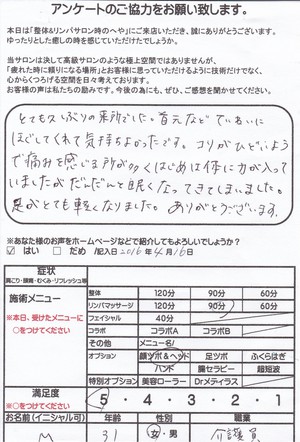 アンケートのご協力をお願い致します。
本日は「整体&リンパサロン時のへや」にご来店いただき、誠にありがとうございます。
ゆったりとした癒しの時を感じていただけでしょうか。
当サロンは決して高級サロンのような極上空間ではありませんが、
「疲れた時に頼りになる場所」とお客様に思っていただけるように技術だけでなく、
心からくつろげる空間を日々考えております。
お客様の声は私たちの励みです。今後の為にも、ぜひ、ご感想を聞かせてください。
とても久しぶりの来所でした。首元などていねいに
ほぐしてくれて気持ちよかったです。コリがひどいようで
痛みを感じる所が多くはじめは体に力が入って
いましたがだんだんと眠くなってきてしまいました。
足がとても軽くなりました。ありがとうございます。
※あなた様のお声をホームページなどで紹介してもよろしいでしょうか?
☑ はい □ だめ /記入日 2016年 4月 16日
症状
肩こり・頭痛・むくみ・リフレッシュ等
施術メニュー
※本日、受けたメニューに
○をつけてください
整体 120分 90分 60分
リンパマッサージ 120分 90分 60分
フェイシャル 40分
コラボ コラボA コラボB
その他 メニュー名/
オプション 顔ツボ&ヘッド 足ツボ ふくらはぎ
ハンド 腸セラピー 超短波
特別オプション 美容ローラー Drメディラス
満足度
※○をつけてください
5・4・3・2・1
お名前(イニシャル可) 年齢 性別 職業
M 31 女・男 介護員